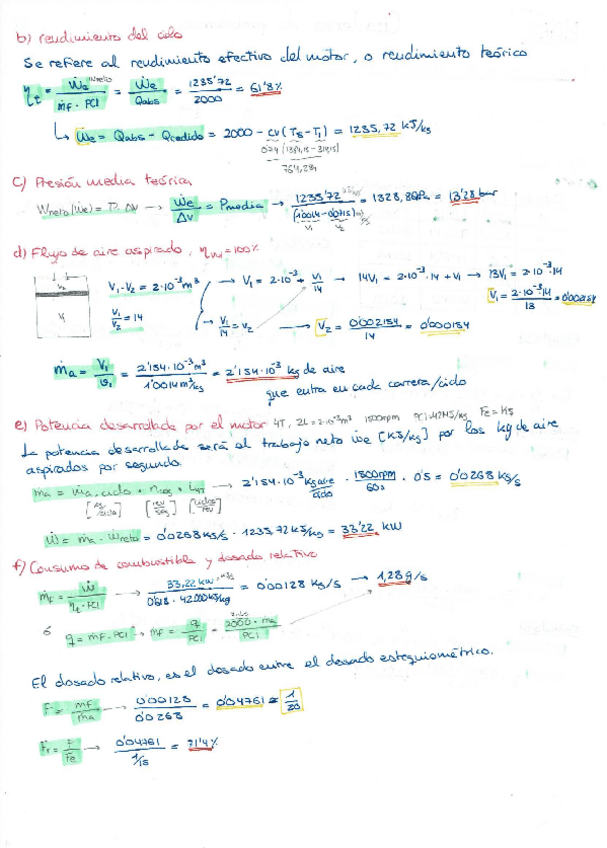 b) rendimiento del ciclo
Se refiere al rendimiento efectivo del motor, o rendimiento teórico
ηt = Ẇe neto / ṁF · PCI = Ẇe / Qabs = 1235'72 / 2000 = 61'8%
↳ Ẇe = Qabs - Qcedido = 2000 - cv (T5 - T1) = 1235,72 kJ/kg
764,284
c) Presión media teórica
Wneto (Ẇe) = P · ΔV → Ẇe / Δv = Pmedia → 1235'72 / (1'0014 - 0'0715) = 1328,8 kPa = 13'28 bar
V1 V2
d) Flujo de aire aspirado, ηvol = 100%
V2
V1
V1 - V2 = 2·10⁻³ m³ → V1 = 2·10⁻³ + V1/14 → 14V1 = 2·10⁻³·14 + V1 → 13V1 = 2·10⁻³·14
V1/V2 = 14 → V1/14 = V2 → V2 = 0'002154 / 14 = 0'000154
V1 = 2·10⁻³·14 / 13 = 0'002154
ṁa = V1 / v1 = 2'154·10⁻³ m³ / 1'0014 m³/kg = 2'154·10⁻³ kg de aire
que entra en cada carrera/ciclo
e) Potencia desarrollada por el motor 4T, 2L = 2·10⁻³ m³ 1500rpm PCI 42MJ/kg
La potencia desarrollada será al trabajo neto ẇe [kJ/kg] por los kg de aire
aspirados por segundo.
ṁa = ma, ciclo · nreg · i4T → 2'154·10⁻³ kg aire / ciclo · 1500rpm / 60s · 0'5 = 0'0268 kg/s
[kg/ciclo] [rev/seg] [ciclos/rev]
Ẇ = ṁa · Ẇneto = 0'0268 kg/s · 1235,72 kJ/kg = 33'22 kW
f) Consumo de combustible y dosado relativo
ṁF = Ẇ / ηt · PCI → 33,22 kW / 0'618 · 42000 kJ/kg = 0'00128 kg/s → 1,28 g/s
ó q = ṁF · PCI → ṁF = q / PCI = 2000 · ma / PCI
El dosado relativo, es el dosado entre el dosado estequiométrico.
F = ṁF / ṁa → 0'00128 / 0'0268 = 0'04761 ≈ 1/20
Fr = F / Fe → 0'04761 / 1/15 = 71'4%